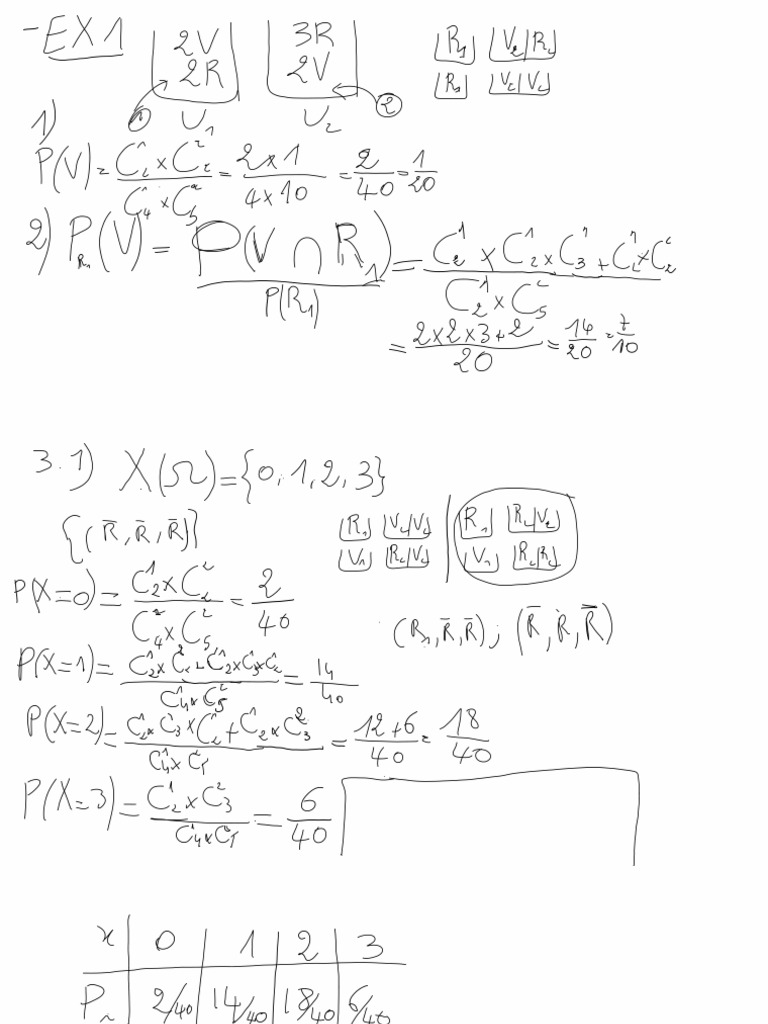 - EX1
2V
2R
U₁
3R
2V
U₂
①
②
R₁ V₂|R₂
R₁ V₂|V₂
1)
P(V) = C₂¹ × C₂² / C₄¹ × C₅² = 2 × 1 / 4 × 10 = 2/40 = 1/20
2) P_R₁(V) = P(V ∩ R₁) / P(R₁) = C₂¹ × C₂¹ × C₃¹ + C₂¹ × C₂² / C₂¹ × C₅²
= 2×2×3+2 / 20 = 14/20 = 7/10
3.1) X(Ω) = {0, 1, 2, 3}
{(R̄, R̄, R̄)}
R₁ V₂|V₂
V₁ R₂|V₂
R₁ R₂|V₂
V₁ R₂|R₂
P(X=0) = C₂¹ × C₂² / C₄¹ × C₅² = 2/40
(R₁, R̄, R̄) ; (R̄, R, R̄)
P(X=1) = C₂¹ × C₂² + C₂¹ × C₃¹ × C₂¹ / C₄¹ × C₅² = 14/40
P(X=2) = C₂¹ × C₃¹ × C₂¹ + C₂¹ × C₃² / C₄¹ × C₅² = 12+6 / 40 = 18/40
P(X=3) = C₂¹ × C₃² / C₄¹ × C₅² = 6/40
x | 0 | 1 | 2 | 3
P | 2/40 | 14/40 | 18/40 | 6/40